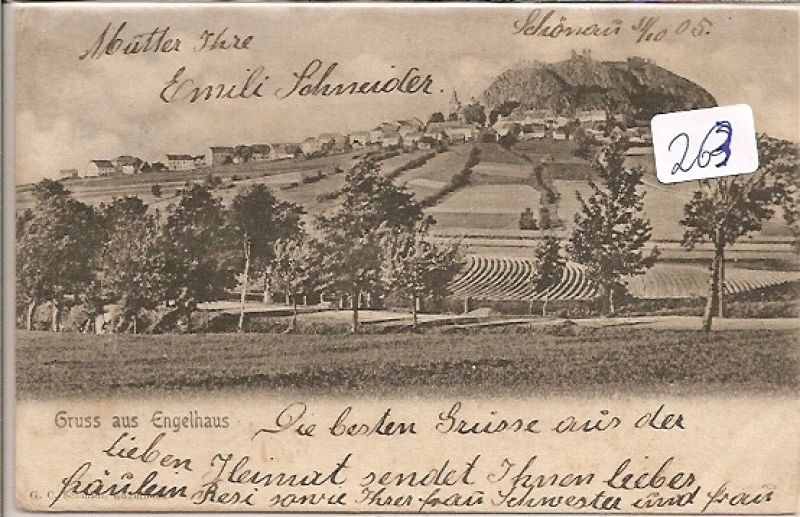 Schönau 31/10 05.
Mutter Ihre
Emili Schneider.
263
Gruss aus Engelhaus
Die besten Grüsse aus der
lieben Heimat sendet Ihnen lieber
fräulein Resi sowie Ihrer frau Schwester und frau
G. C.